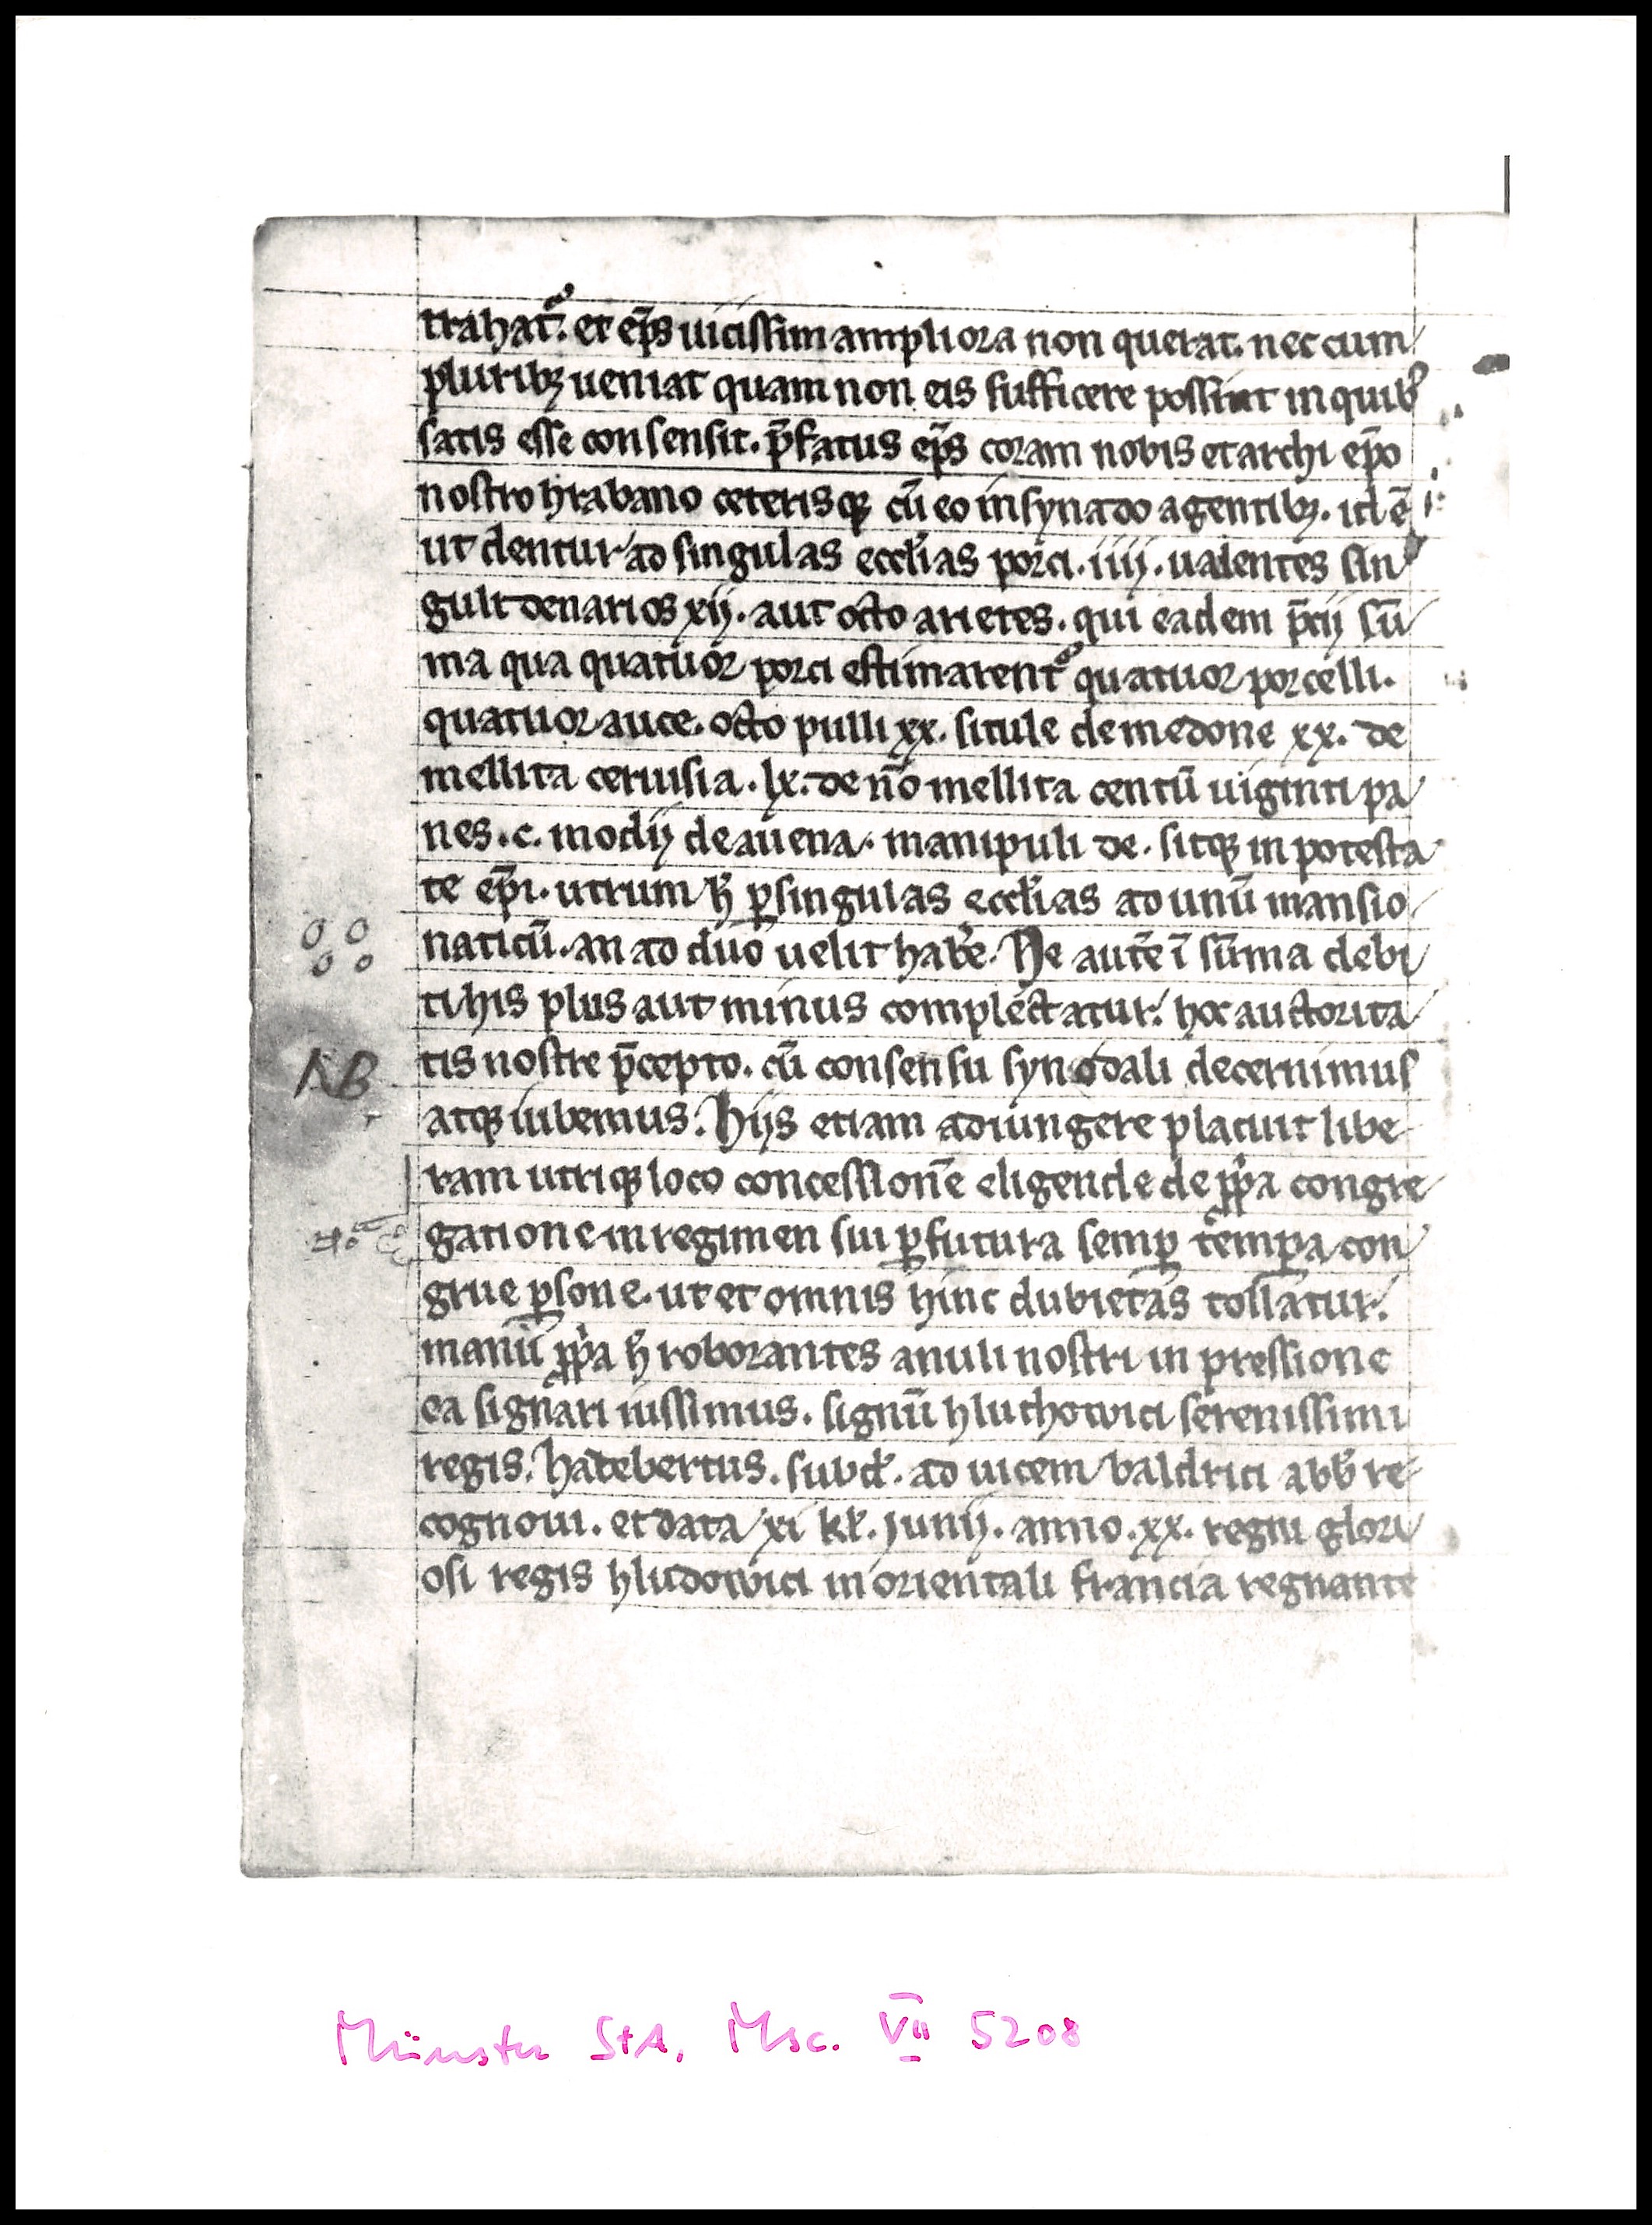 trahat᷑. et ep̄s uicissim ampliora non querat. nec cum
pluribꝫ ueniat quam non eis sufficere possint in quibꝰ
satis esse consensit. p̄fatus ep̄s coram nobis et archi ep̄o
nostro hrabano ceterisqꝫ cū eo in synado agentibꝫ. id ē
ut dentur ad singulas eccłias porci. iiij. ualentes sin
guli denarios xij. aut octo arietes. qui eadem p̄cij sū
ma qua quatuor porci estimarent᷑ quatuor porcelli.
quatuor auce. octo pulli xx. situle de medone xx. de
mellita ceruisia. lx. de nō mellita centū uiginti pa
nes. c. modij de auena. manipuli dc. sitqꝫ in potesta
te ep̄i. utrum h̄ ꝑ singulas eccłias ad unū mansio
naticū. an ad duo uelit hab̄e. Ne aut̄e ī sūma debi
ti his plus aut minus complectatur. hoc auctorita
tis nostre p̄cepto. cū consensu synodali decernimus
atqꝫ iubemus. Hijs etiam adiungere placuit libe
ram utriqꝫ loco concessionē eligende de ꝓp̄a congre
gatione in regimen sui ꝑ futura semꝑ tempa con
grue ꝑsone. ut et omnis hinc dubietas tollatur.
manū ꝓp̄a h̄ roborantes anuli nostri in pressione
ea signari iussimus. signū hluthowici serenissimi
regis. hadebertus. subđ. ad uicem baldrici abb̄ re
cognoui. et data xi kł. junij. anno. xx. regni glori
osi regis hludowici in orientali francia regnante
KB
Münster StA, Msc. VII 5208